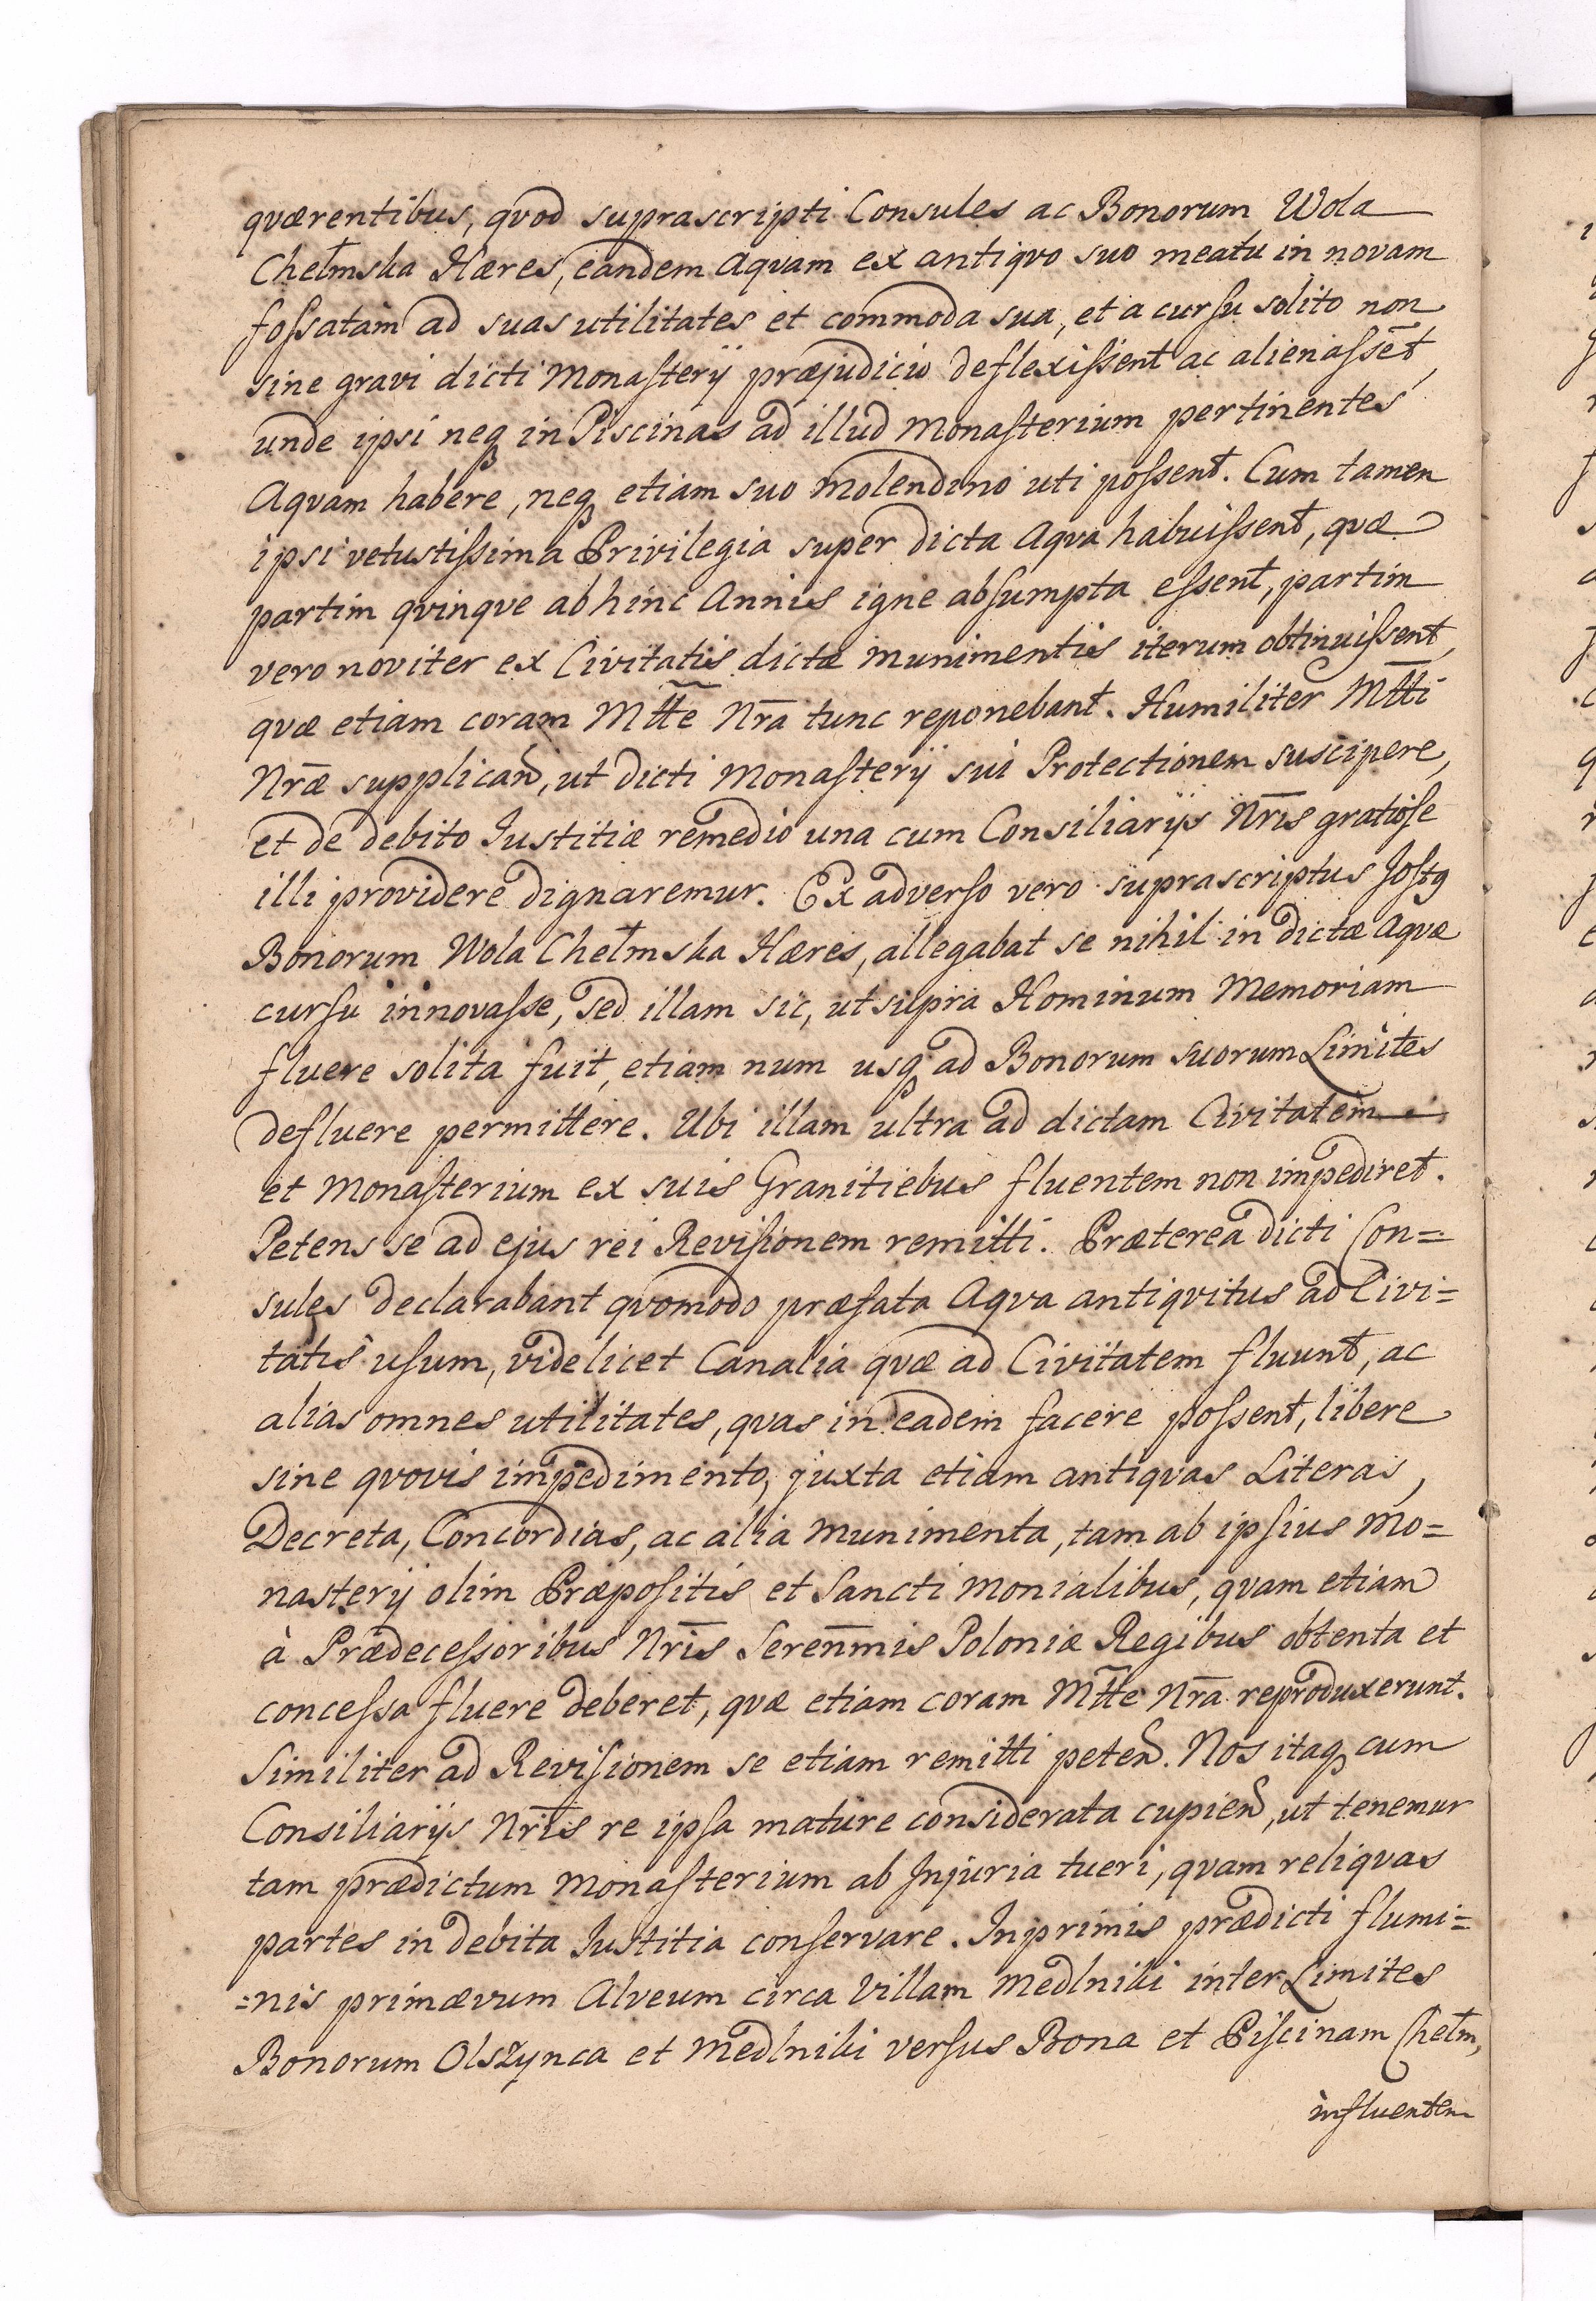 quærentibus, quod suprascripti Consules ac Bonorum Wola
Chełmska Hæres, eandem Aquam ex antiquo suo meatu in novam
foſsatam ad suas utilitates et commoda sua, et a curſu solito non
sine gravi dicti Monaſterÿ præjudicio deflexiſsent ac alienaſsēt,
unde ipsi neqꝫ in Piscinas ad illud Monaſterium pertinentes
Aquam habere, neqꝫ etiam suo Molendino uti poſsent. Cum tamen
ipsi vetustiſsima Privilegia super dicta Aqua habuiſsent, quæ
partim quinque abhinc Annis igne abſumpta eſsent, partim
vero noviter ex Civitatis dictæ munimentis iterum obtinuiſsent,
quæ etiam coram Mtt̃e Nr̄a tunc reponebant. Humiliter Mtt̄i
Nr̄æ supplican̄, ut dicti Monaſterÿ sui Protectionem suscipere,
et de debito Iustitiæ remedio una cum Consiliarÿs Nr̄is gratioſe
illi providere dignaremur. Ex adverſo vero suprascriptus Joſtg
Bonorum Wola Chełmska Hæres, allegabat se nihil in dictæ Aquæ
curſu innovaſse, sed illam sic, ut supra Hominum Memoriam
fluere solita fuit, etiam num usqꝫ ad Bonorum suorum Limites
defluere permittere. Ubi illam ultra ad dictam Civitatem
et Monaſterium ex suis Granitiebus fluentem non impediret.
Petens se ad ejus rei Reviſionem remitti. Præterea dicti Con=
sules declarabant quomodo præfata Aqua antiquitus ad Civi=
tatis uſum, videlicet Canalia quæ ad Civitatem fluunt, ac
alias omnes utilitates, quas in eadem facere poſsent, libere
sine quovis impedimento, juxta etiam antiquas Literas,
Decreta, Concordias, ac alia Munimenta, tam ab ipſius Mo=
nasterÿ olim Præpoſitis et Sancti monialibus, quam etiam
à Prædeceſsoribus Nr̄is Seren̄mis Poloniæ Regibus obtenta et
conceſsa fluere deberet, quæ etiam coram Mtt̃e Nr̄a reproduxerunt.
Similiter ad Reviſionem se etiam remitti peten̄. Nos itaqꝫ cum
Consiliarÿs Nr̄is re ipſa mature considerata cupien̄, ut tenemur
tam prædictum Monaſterium ab Injuria tueri, quam reliquas
partes in debita Iustitia conſervare. Inprimis prædicti flumi=
=nis primævum Alveum circa Villam Medlniki inter Limites
Bonorum Olszynca et Medlniki verſus Bona et Piſcinam Chełm,
influentem